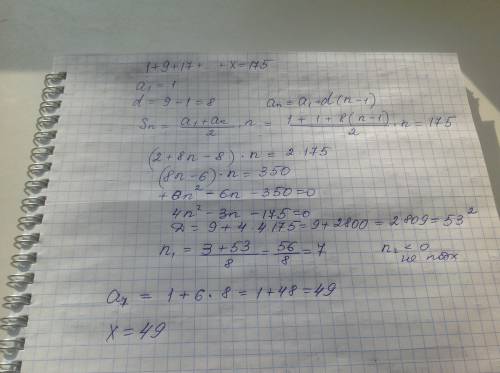 1+9+17+ . . +x=175
a₁ = 1
d = 9-1=8 aₙ = a₁+d(n-1)
Sₙ = (a₁+aₙ)/2 · n = (1+1+8(n-1))/2 · n = 175
(2+8n-8)·n = 2·175
(8n-6)·n = 350
+8n²-6n-350=0
4n²-3n-175=0
D = 9+4·4·175=9+2800=2809=53²
n₁ = (3+53)/8 = 56/8 = 7 n₂ < 0
не подх
a₇ = 1+6·8=1+48=49
x=49